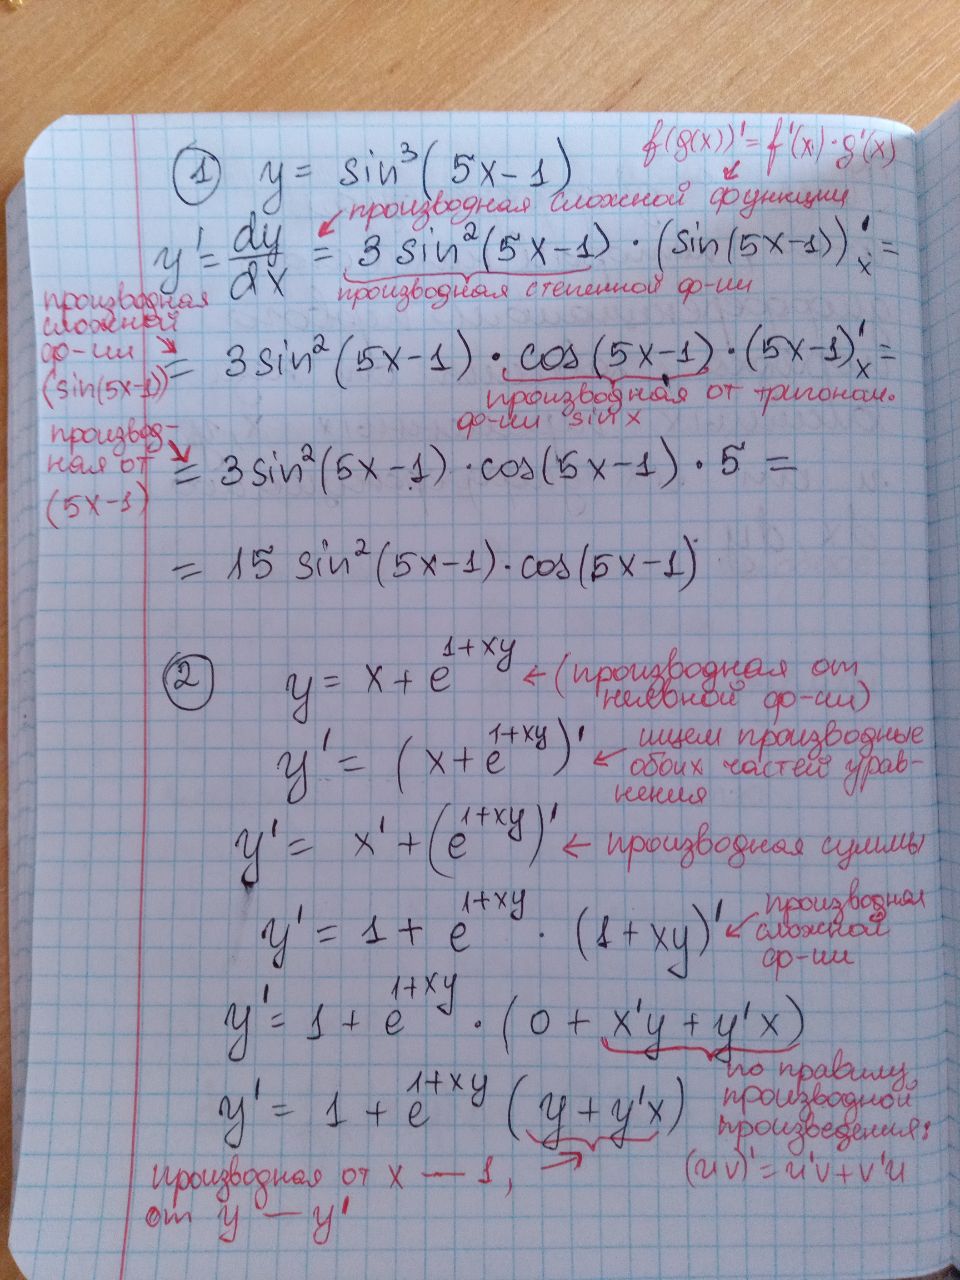 f(g(x))' = f'(x)·g'(x)
① y = sin³(5x-1)
производная сложной функции
y' = dy/dx = 3 sin²(5x-1) · (sin(5x-1))'ₓ =
производная степенной ф-ии
производная
сложной
ф-ии
(sin(5x-1))
= 3sin²(5x-1) · cos(5x-1) · (5x-1)'ₓ =
производная от тригоном.
ф-ии sin x
производ-
ная от
(5x-1)
= 3sin²(5x-1) · cos(5x-1) · 5 =
= 15 sin²(5x-1) · cos(5x-1)
② y = x + e^(1+xy) ← (производная от
неявной ф-ии)
y' = (x + e^(1+xy))' ← ищем производные
обоих частей урав-
нения
y' = x' + (e^(1+xy))' ← производная суммы
y' = 1 + e^(1+xy) · (1+xy)' ← производная
сложной
ф-ии
y' = 1 + e^(1+xy) · (0 + x'y + y'x)
по правилу
производной
произведения:
(uv)' = u'v + v'u
y' = 1 + e^(1+xy) (y + y'x)
производная от x — 1,
от y — y'